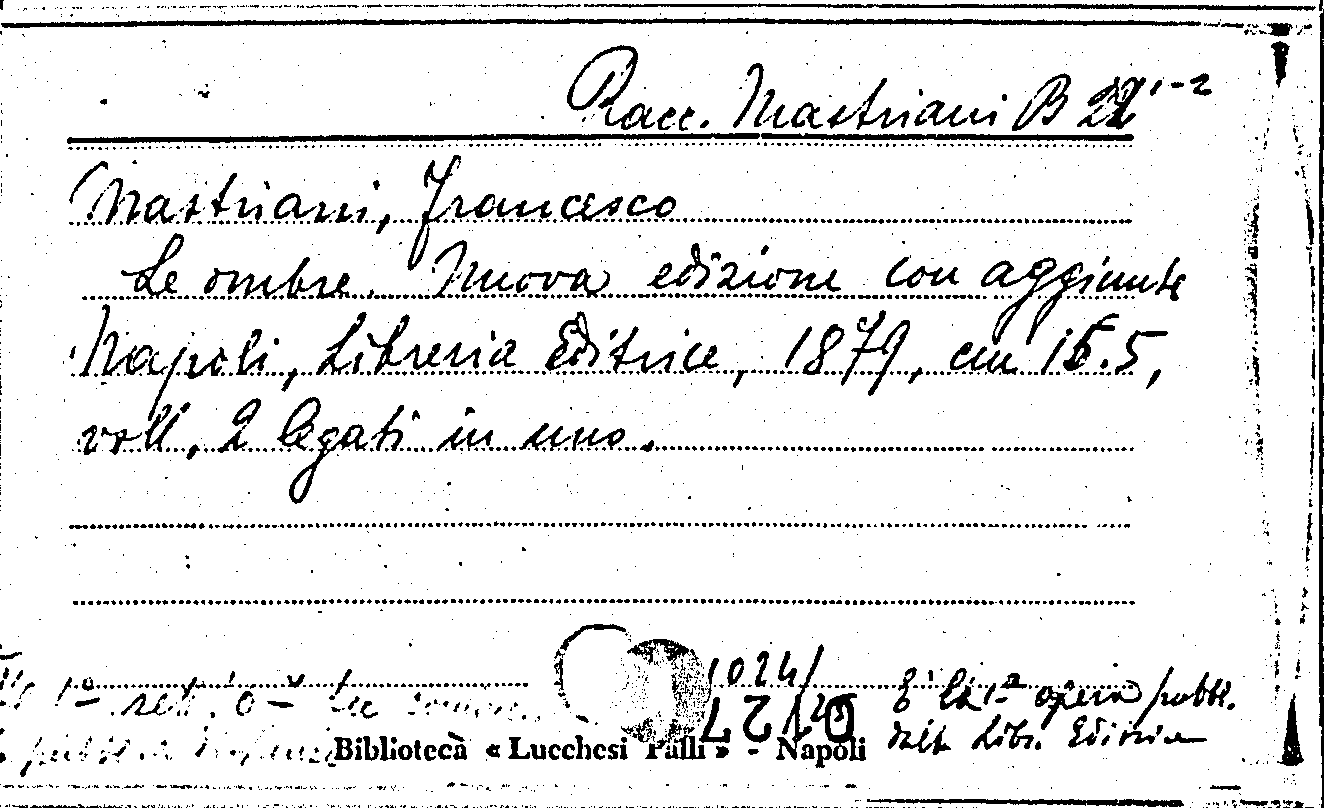 Racc. Mastriani B 22 1-2
Mastriani, Francesco
Le ombre. Nuova edizione con aggiunte
Napoli, Libreria Editrice, 1879, cm 15.5,
voll. 2 legati in uno.
1024/
È la 1ª opera pubbl.
dalla Libr. Editrice
Biblioteca « Lucchesi Palli » - Napoli